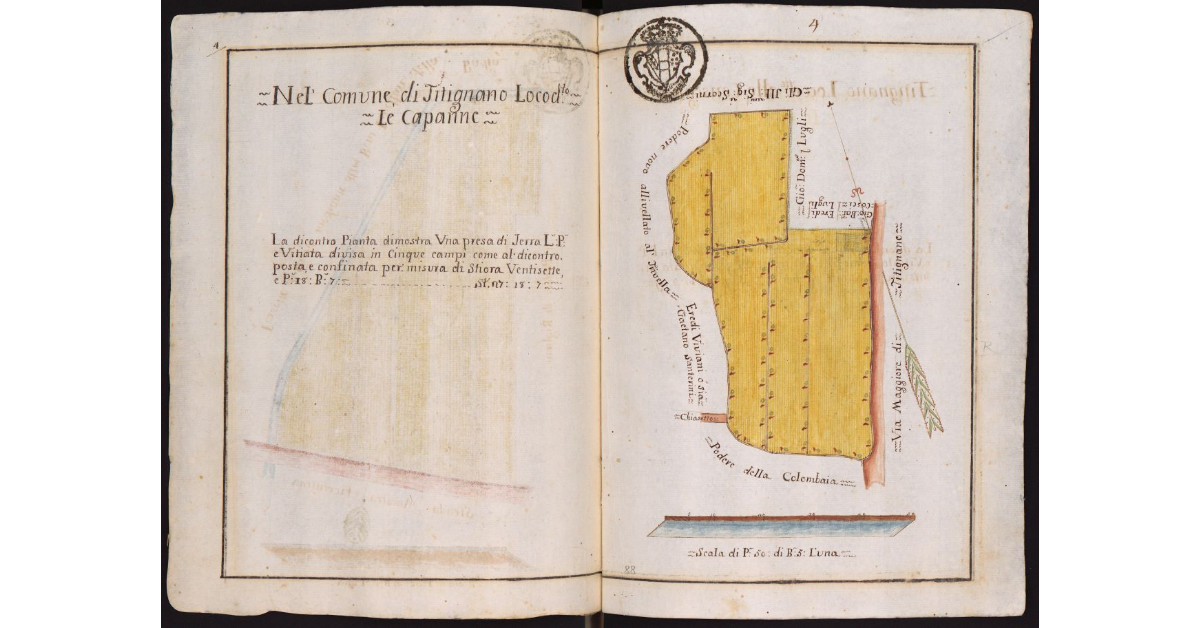 4
~Nel' Comune, di Titignano Locod.to~
~Le Capanne~
La dicontro Pianta dimostra Vna presa di Terra L.a P.a
e Vitiata divisa in Cinque campi come al' dicontro,
posta, e confinata per' misura di Stiora Ventisette,
e P.e 18: B.a 7:
St. 27: 18: 7
4
Gli Ill.mi Sig.ri Scorni
Podere novo allivellato al' Tuvella
Gio: Dom.co Lugli
Gio: Bat.a Eredi
Lugli
Eredi Viviani ò sia
Gaetano Santerini
=Chiasetto=
Via Maggiore di Titignano
Podere della Colombaia
=Scala di P.e 50: di B.a 5: L'una=
88